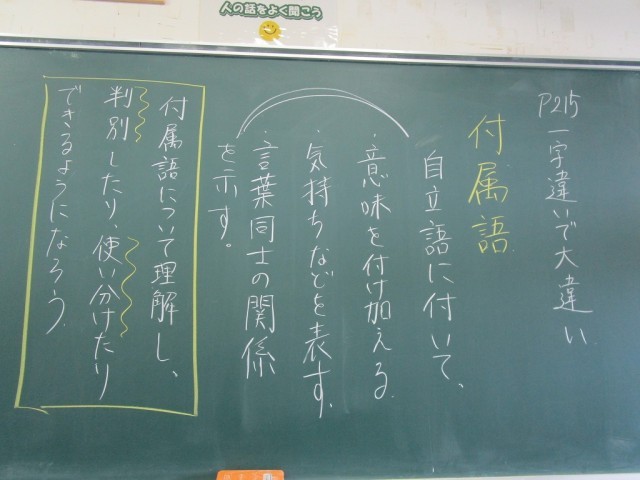 人の話をよく聞こう
P215 一字違いで大違い
付属語
自立語に付いて、
・意味を付け加える
・気持ちなどを表す。
・言葉同士の関係
を示す。
付属語について理解し、
判別したり、使い分けたり
できるようになろう。